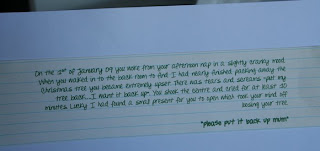 On the 2nd of January 09 you woke from your afternoon nap in a slightly cranky mood.
When you walked in to the back room to find I had nearly finished packing away the
Christmas tree you became extremely upset. There was tears and screams "put my
tree back....I want it back up". You shook the centre and cried for at least 20
minutes. Luckily I had found a small present for you to open which took your mind off
loosing your tree.
"please put it back up mum"